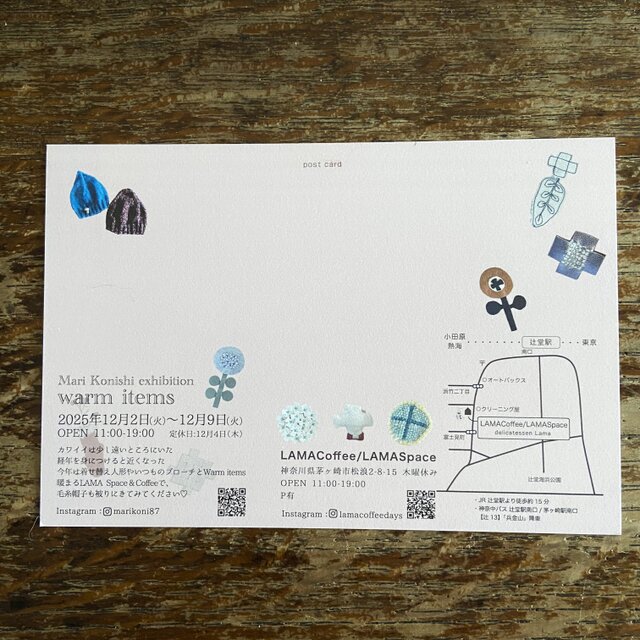 post card
小田原
熱海
辻堂駅
東京
南口
オートバックス
浜竹二丁目
クリーニング屋
LAMACoffee/LAMASpace
delicatessen Lama
富士見町
辻堂海浜公園
・JR 辻堂駅より徒歩約15分
・神奈中バス 辻堂駅南口 / 茅ヶ崎駅南口
【辻13】「兵金山」降車
Mari Konishi exhibition
warm items
2025年12月2日(火)〜12月9日(火)
OPEN 11:00-19:00 定休日:12月4日(木)
カワイイは少し遠いところにいた
経年を身につけると近くなった
今年は着せ替え人形やいつものブローチとWarm items
暖まるLAMA Space＆Coffeeで、
毛糸帽子も被りにきてみてください♡
Instagram : marikoni87
LAMACoffee/LAMASpace
神奈川県茅ヶ崎市松浪2-8-15 木曜休み
OPEN 11:00-19:00
P有
Instagram : lamacoffeedays